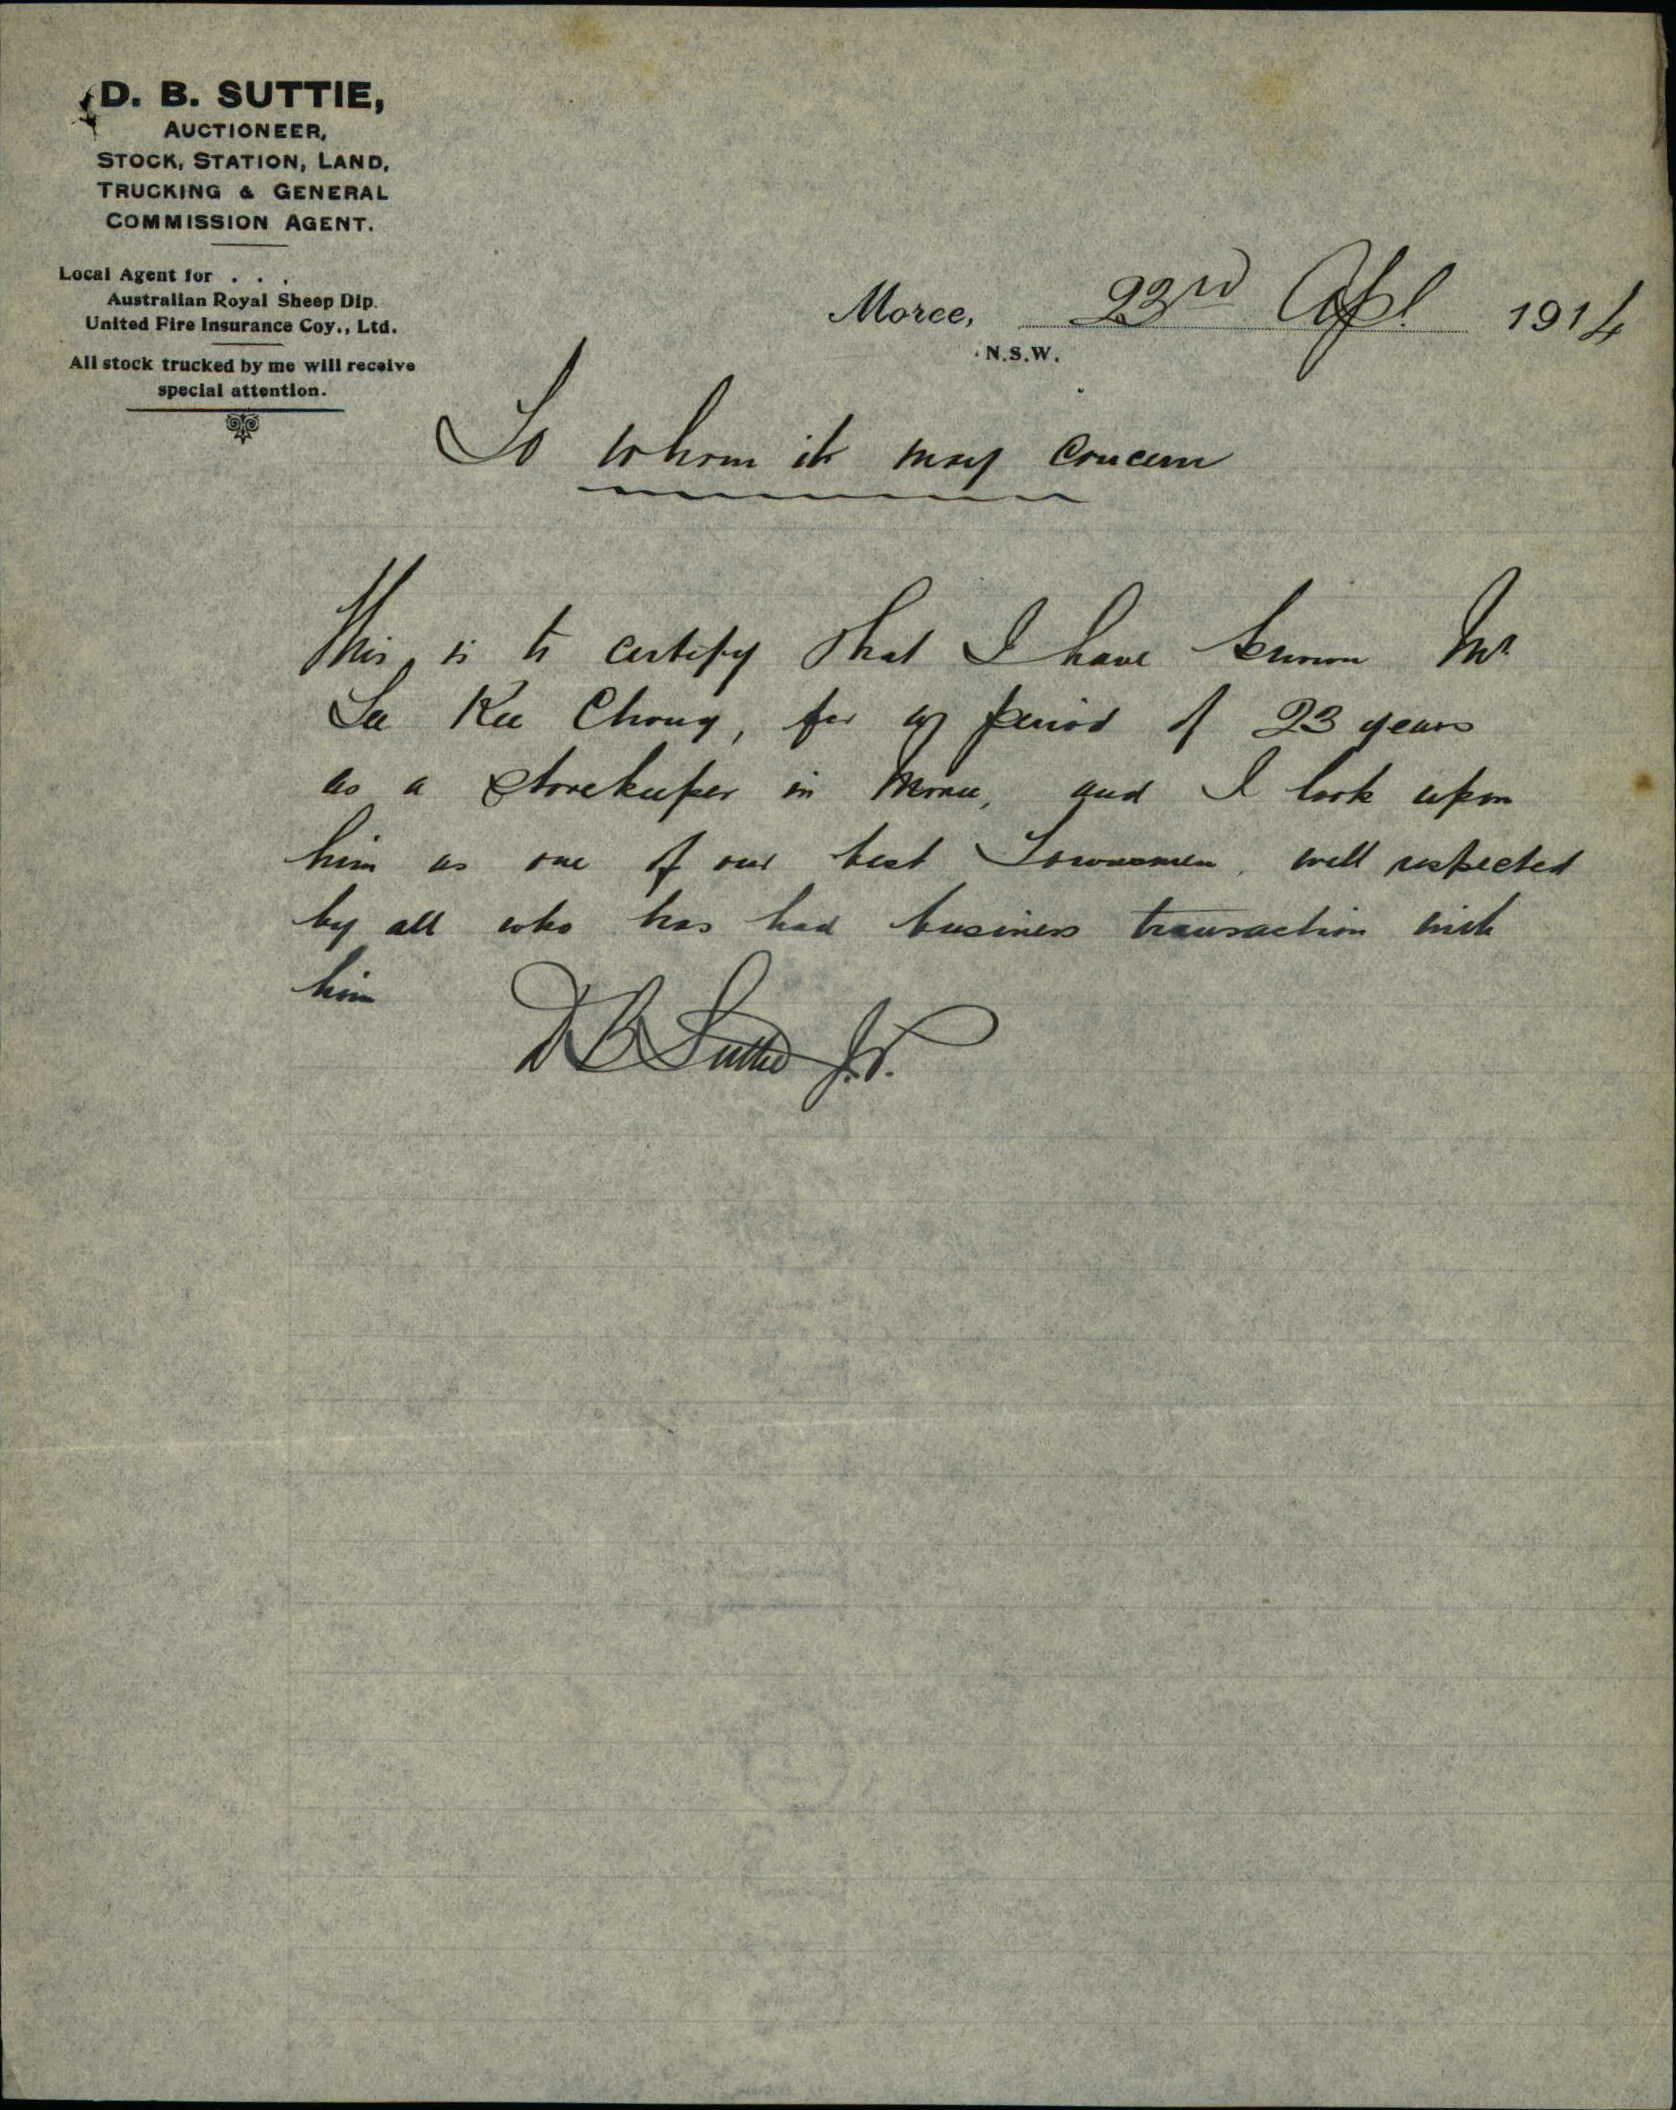 D. B. SUTTIE,
AUCTIONEER,
STOCK, STATION, LAND,
TRUCKING & GENERAL
COMMISSION AGENT.
Local Agent for . . .
Australian Royal Sheep Dip.
United Fire Insurance Coy., Ltd.
All stock trucked by me will receive
special attention.
Moree, 23rd Apl. 1914
N.S.W.
To whom it may concern
This is to certify that I have known Mr
Lee Kee Chong, for a period of 23 years
as a storekeeper in Moree, and I look upon
him as one of our best Townsmen, well respected
by all who has had business transaction with
him
D B Suttie J.P.